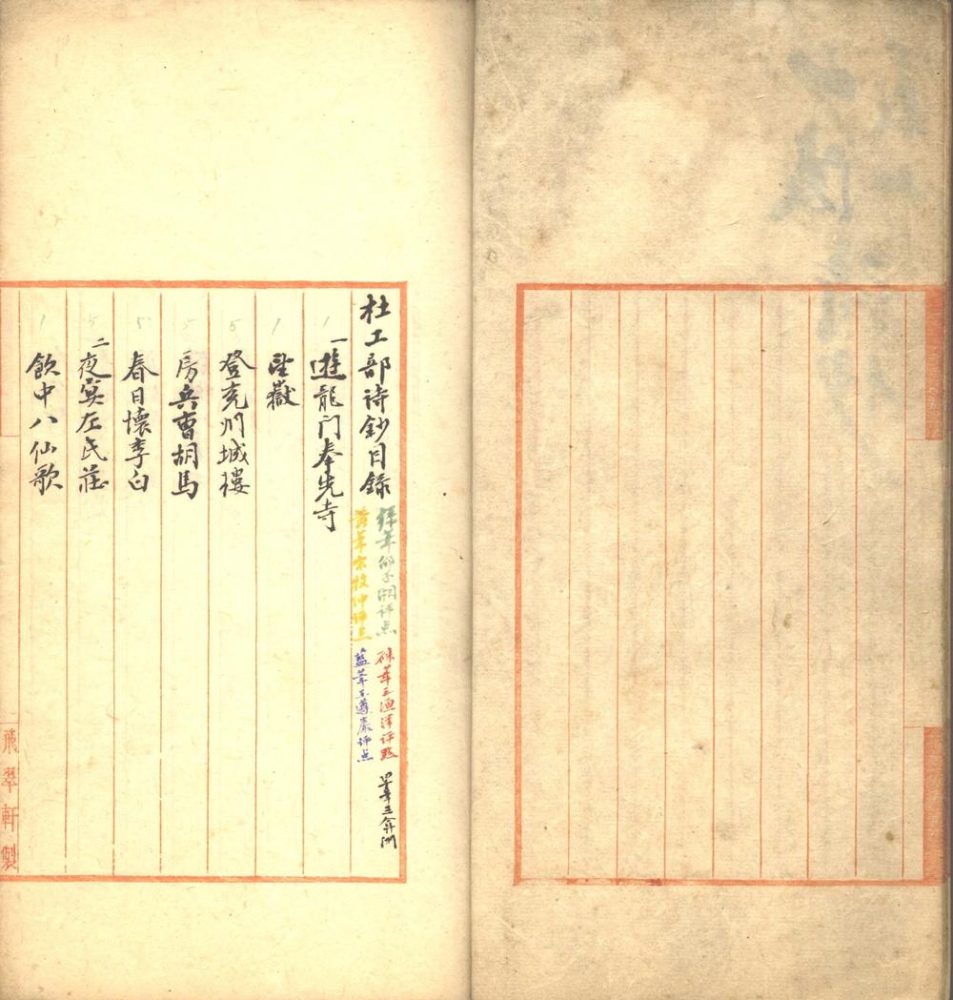 杜工部诗鈔目錄
緑筆邵子湘评点
硃筆王漁洋评點
墨筆王弇州
黄筆宋牧仲评点
藍筆王遵巖评点
1 一遊龍门奉先寺
1 望嶽
5 登兖州城樓
5 房兵曹胡馬
5 春日懷李白
5 二夜宴左氏莊
1 飲中八仙歌
飛翠軒製